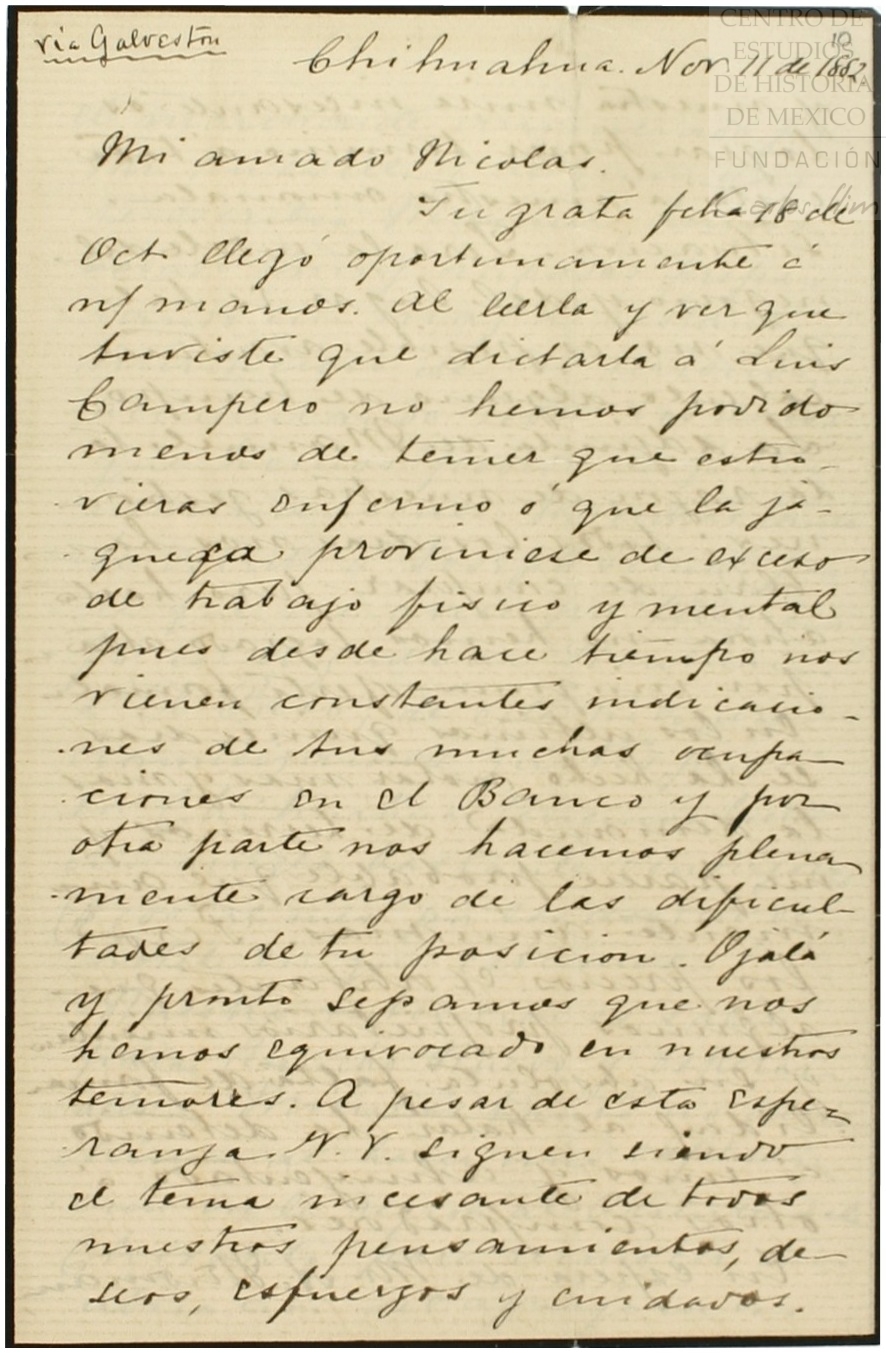 via Galveston
CENTRO DE
ESTUDIOS
DE HISTORIA
DE MEXICO
FUNDACIÓN
10
Chihuahua. Nov. 11 de 1882.
Mi amado Nicolas.
Tu grata fcha 18 de
Oct llegó oportunamente á
n/ manos. Al leerla y ver que
tuviste que dictarla á Luis
Campero no hemos podido
menos de temer que estu-
vieras enfermo ó que la ja-
queca proviniese de exceso
de trabajo fisico y mental
pues desde hace tiempo nos
vienen constantes indicacio-
nes de tus muchas ocupa-
ciones en el Banco y por
otra parte nos hacemos plena-
mente cargo de las dificul-
tades de tu posicion. Ojalá
y pronto sepamos que nos
hemos equivocado en nuestros
temores. A pesar de esta espe-
ranza N. V. siguen siendo
el tema incesante de todos
nuestros pensamientos, de-
seos, esfuerzos y cuidados.